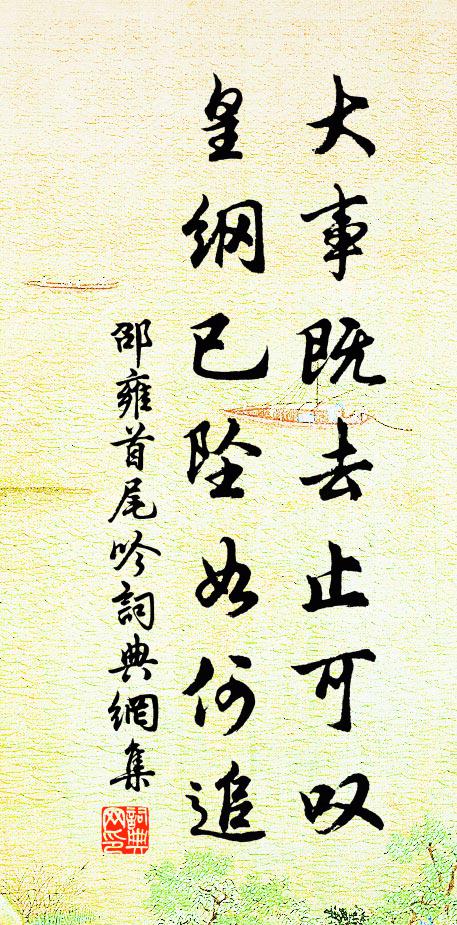 大事既去止可叹
皇纲已坠如何追
邵雍首尾吟詞典網集
詞典
网印